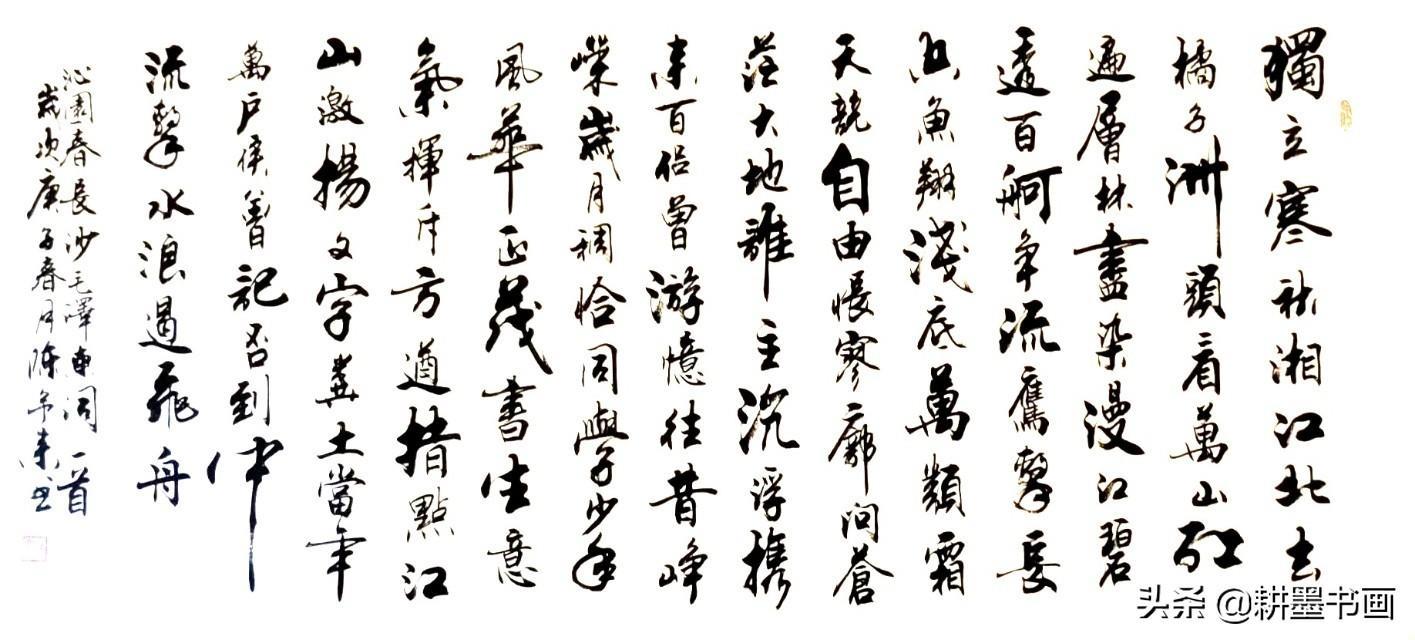 獨立寒秋湘江北去
橘子洲頭看萬山紅
遍層林盡染漫江碧
透百舸争流鷹擊長
空魚翔淺底萬類霜
天競自由悵寥廓問蒼
茫大地誰主沉浮携
来百侣曾游憶往昔峥
嶸歲月稠恰同學少年
風華正茂書生意
氣揮斥方遒指點江
山激揚文字糞土當年
萬户侯曾記否到中
流擊水浪遏飛舟
沁園春長沙毛澤東词一首
歲次庚子春月陳予来书
头条 @耕墨书画